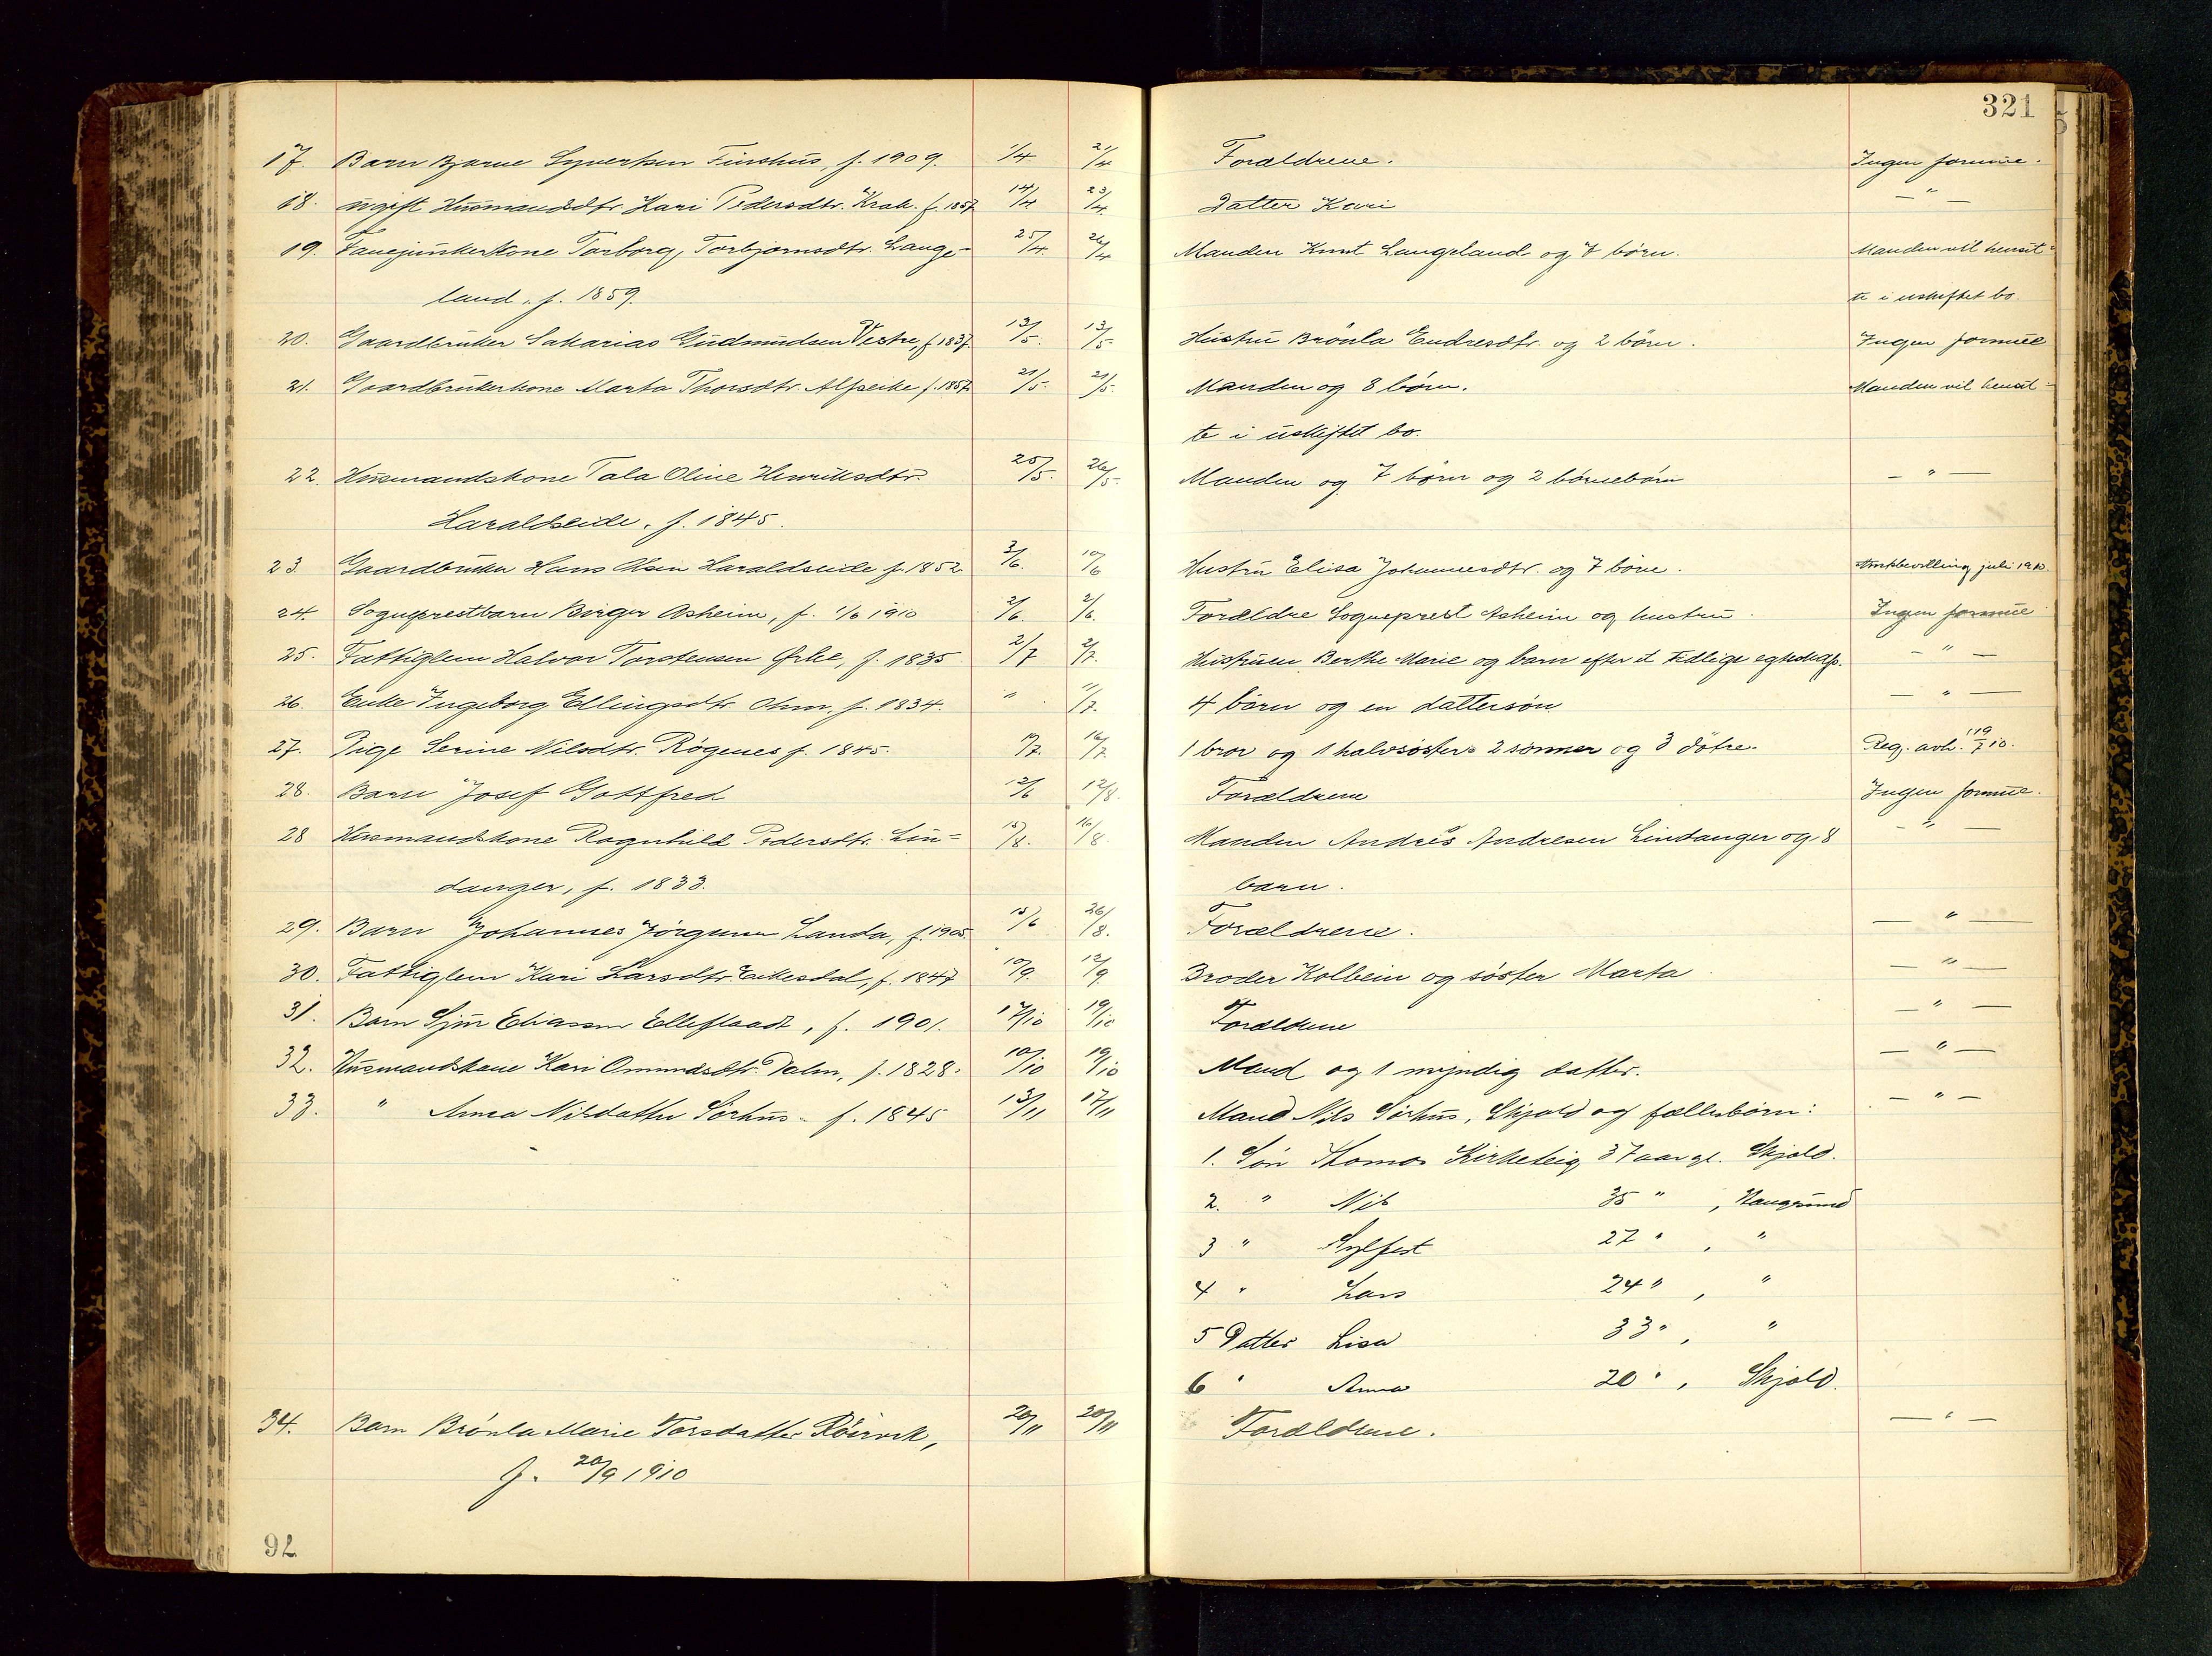 321
17. Barn Bjarne Syversen Finshus, f. 1909. 1/4 2/4 Forældrene. Ingen formue.
18. ugift Husmandsdtr. Kari Pedersdtr. Krak. f. 1857 14/4 23/4 Datter Kari — " —
19. Fanejunkerkone Torborg Torbjørnsdtr. Lange- 25/4 26/4 Manden Knut Langeland og 7 børn. Manden vil hensit-
land, f. 1859. te i uskiftet bo.
20. Gaardbruker Sakarias Gudmundsen Vestre, f. 1837. 13/5. 13/5 Hustru Brønla Endresdtr. og 2 børn. Ingen formue
21. Gaardbrukerkone Marta Thorsdtr. Alfseike f. 1857. 21/5. 21/5. Manden og 8 børn. Manden vil hensit-
te i uskiftet bo.
22. Husmandskone Tala Oline Henriksdtr. 25/5. 26/5. Manden og 7 børn og 2 børnebørn — " —
Haraldseide, f. 1845.
23. Gaardbruker Hans Olsen Haraldseide f. 1852 3/6. 10/6 Hustru Elisa Johannesdtr. og 7 børn. juli 1910.
24. Sogneprestbarn Birger Asheim, f. 1/6 1910 2/6. 2/6. Forældre Sogneprest Asheim og hustru. Ingen formue
25. Fattiglem Halvor Torstensen Ørke, f. 1835 2/7 2/7. Hustruen Berthe Marie og barn efter et tidlige egteskap. — " —
26. Enke Ingeborg Ellingsdtr. f. 1834. " 11/7. 4 børn og en dattersøn — " —
27. Pige Serine Nilsdtr. Røgenes f. 1845. 16/7 1 bror og 1 halvsøster 2 sønner og 3 døtre. Reg. avh. 19/7 10.
28. Barn Josef Gottfred 12/8. Forældrene Ingen formue.
28 Husmandskone Ragnhild Pedersdtr. Lin- 15/8. 16/8. Manden Andrés Andresen Lindanger og 8 — " —
danger, f. 1833. barn.
29. Barn Johannes Jørgensen Landa, f. 1905. 15/6 26/8. Forældrene. — " —
30. Fattiglem Kari Larsdtr. Eikesdal, f. 1847 10/9. 12/9 Broder Kolbein og søster Marta. — " —
31. Barn Sjur Eliassen Elleflaadt, f. 1901. 17/10 19/10 Forældrene — " —
32. Husmandskone Kari Omundsdtr. Dalen, f. 1828. 10/10 19/10 Mand og 1 myndig datter. — " —
33. " Anna Nilsdatter Sørhus. f. 1845 13/11 17/11 Mand Nils Sørhus, Skjold og fællesbørn: — " —
1. Søn Thomas Kirketeig 37 aar gl. Skjold.
2. " Nils 35 " , Haugesund
3 " Sylfest 27 " , "
4 " Lars 24 " , "
5 Datter Lisa 33 " , "
6 " Anna 20 " , Skjold.
34. Barn Brønla Marie Torsdatter Røirvik, 20/11 20/11 Forældrene. — " —
f. 20/9 1910
92